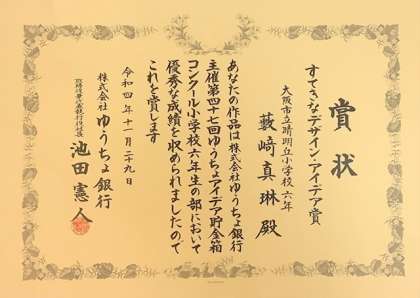 賞状
すてきなデザイン・アイデア賞
大阪市立晴明丘小学校 六年
藪﨑真琳 殿
あなたの作品は株式会社ゆうちょ銀行
主催第四十七回ゆうちょアイデア貯金箱
コンクール小学校六年生の部において
優秀な成績を収められましたので
これを賞します
令和四年十一月二十九日
株式会社ゆうちょ銀行
取締役兼代表執行役社長
池田憲人